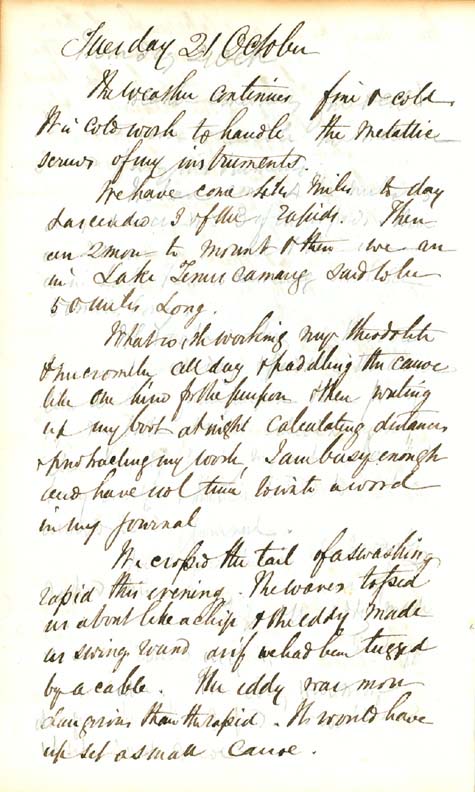 Tuesday 21 October
The weather continues fine & cold
It is cold work to handle the metallic
screws of my instruments.
We have come 4 miles to day
& ascended 3 of the rapids. There
are 2 more to mount & then we are
in Lake Temiscamang said to be
50 miles long.
What with working my theodolite
& micrometer all day & paddling the canoe
like one hired for the purpose & then writing
up my book at night calculating distances
& protracting my work, I am busy enough
and have not time to write a word
in my journal
We crossed the tail of a swashing
rapid this evening. The waves tossed
us about like a chip & the eddy made
us swing round as if we had been tugged
by a cable. The eddy was more
dangerous than the rapid. It would have
upset a small canoe.